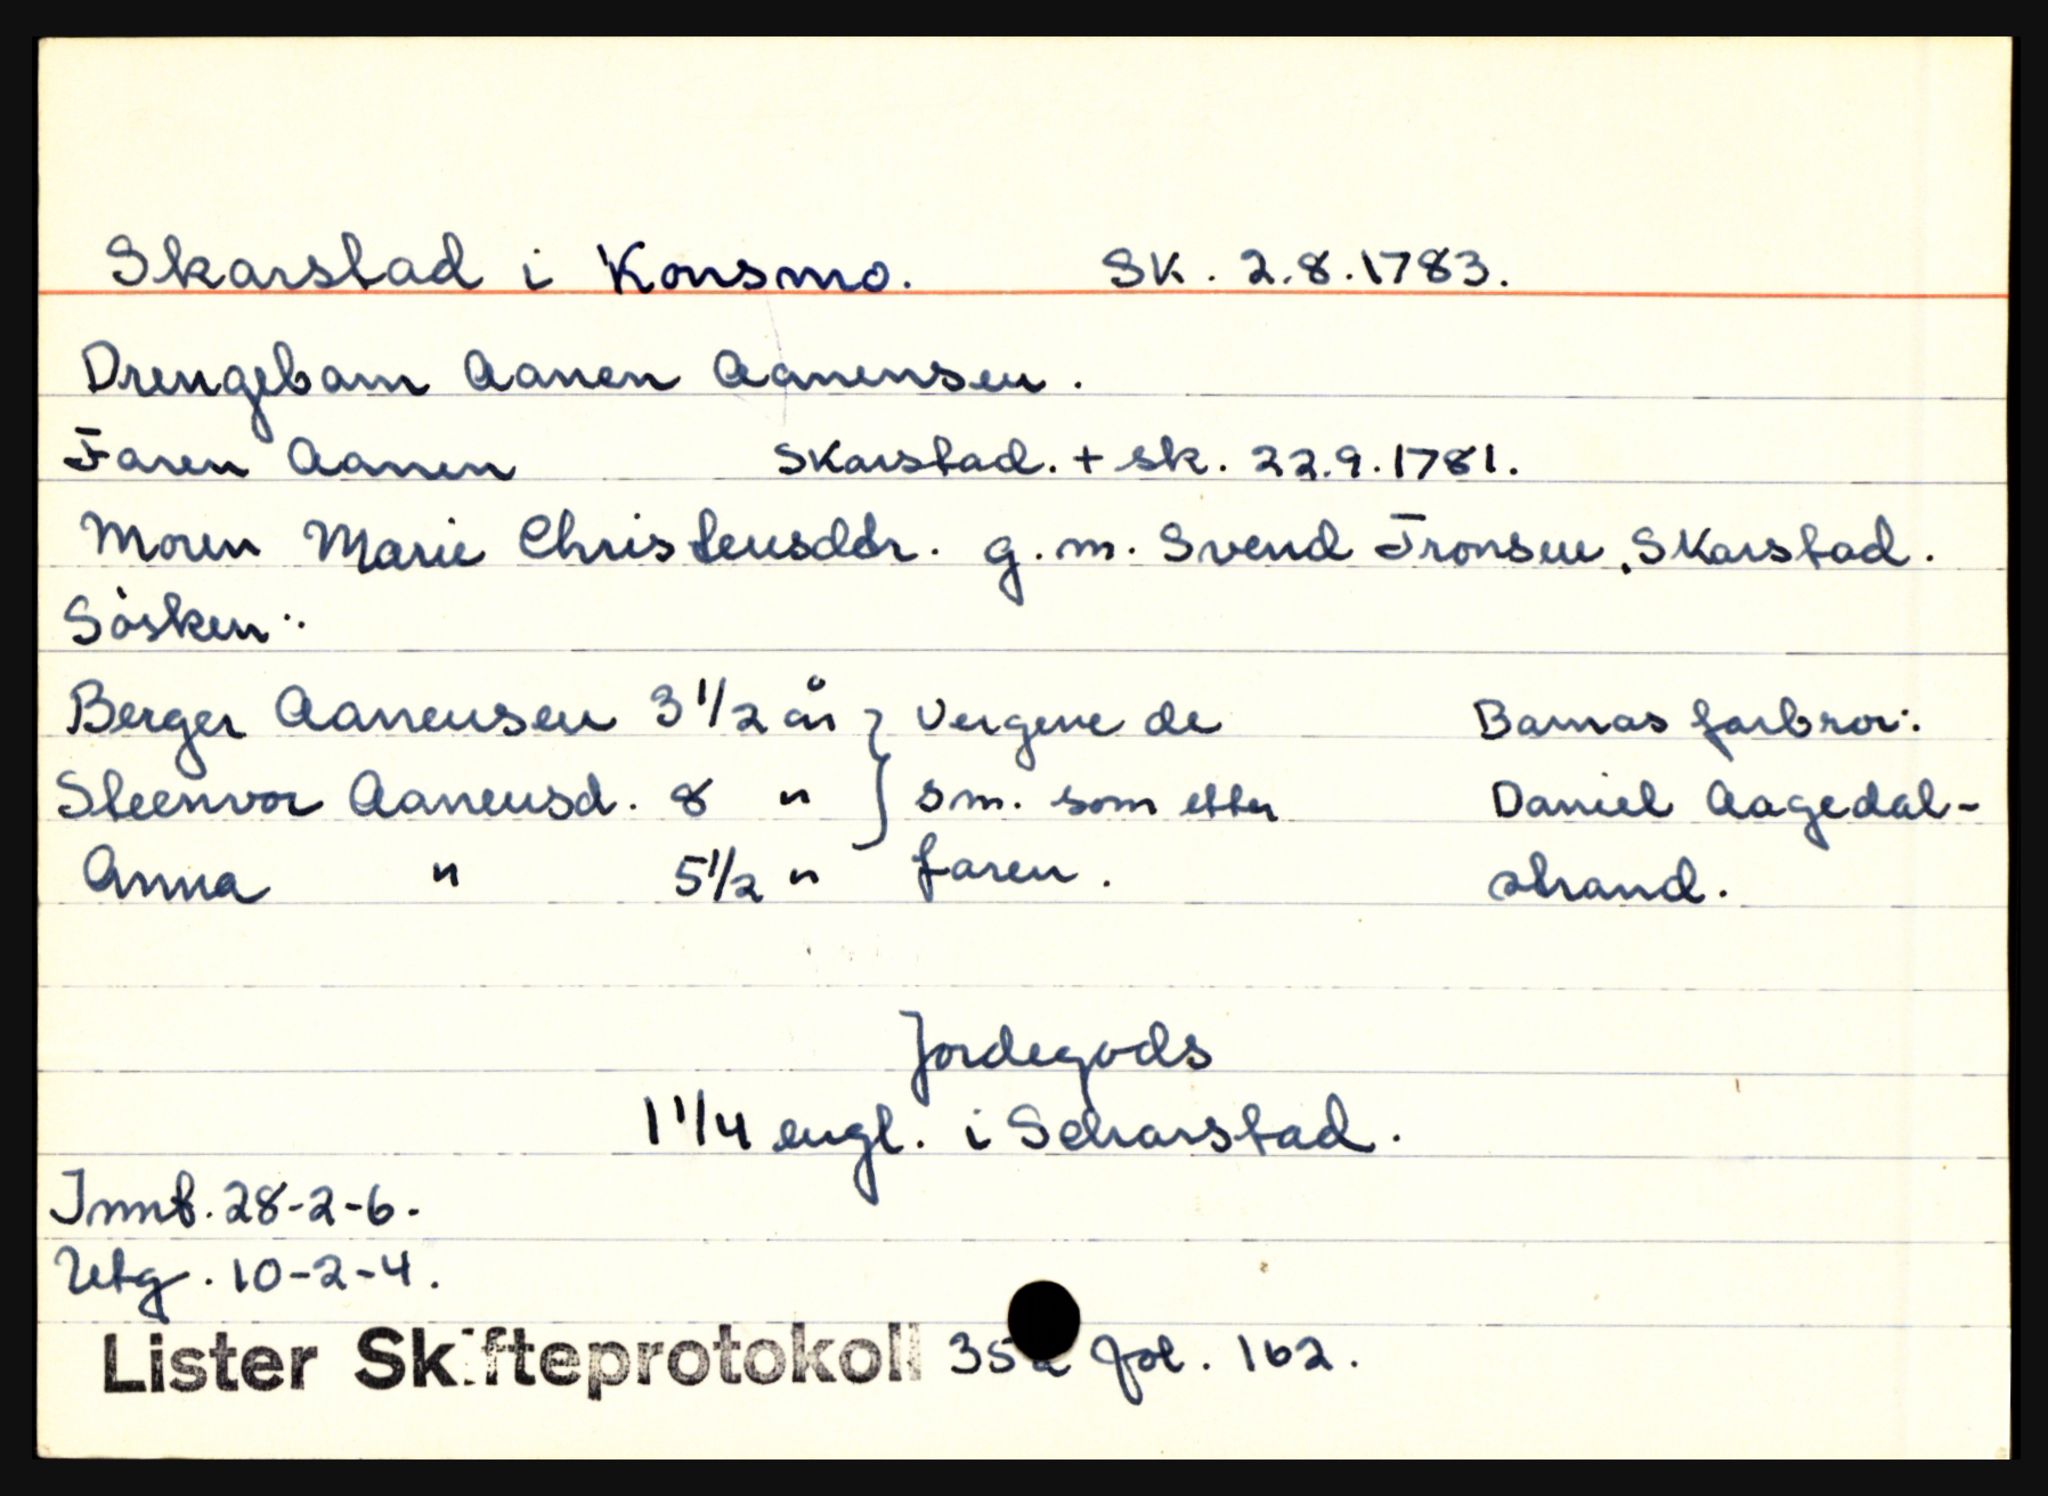 Skarstad i Konsmo. SK. 2.8.1783.
Drengebarn Aanen Aanensen.
Faren Aanen Skarstad. + sk. 22.9.1781.
Moren Marie Christensddr. g.m. Svend Tronsen, Skarstad.
Søsken:
Berger Aanensen 3 1/2 år } Vergene de Barnas farbror:
Steenvor Aanensd. 8 " } sm. som etter Daniel Aagedal-
Anna " 5 1/2 " faren. strand.
Jordegods
1 1/4 engl. i Scharstad.
Innt. 28-2-6.
Utg. 10-2-4.
Lister Skifteprotokoll fol. 162.